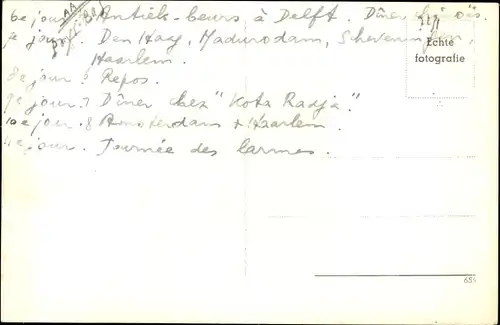 6e jour Antiek-beurs à Delft. Dîner
7e jour. Den Haag, Madurodam, Scheveningen,
Haarlem.
8e jour : Repos.
9e jour. Dîner chez "Kota Radja."
10e jour. Amsterdam + Haarlem.
11e jour. Journée des larmes.
Echte
fotografie